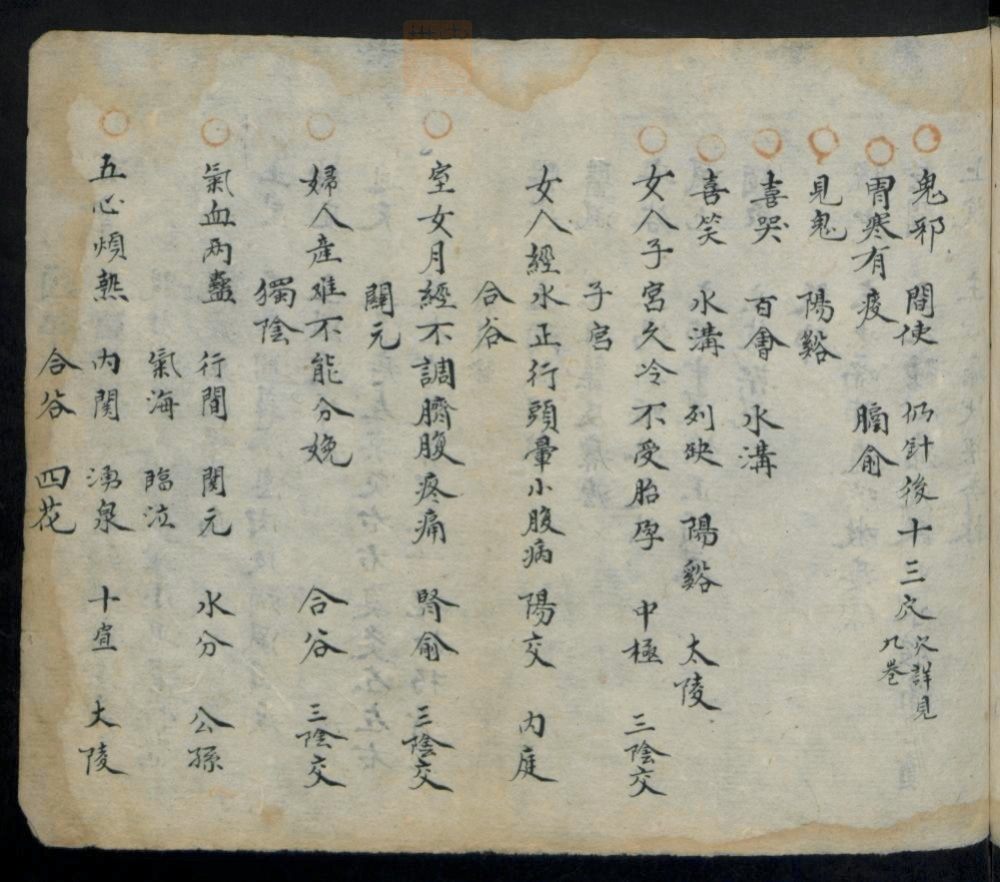 鬼邪 間使 仍針後十三穴 穴詳見九卷
胃寒有痰 膈俞
見鬼 陽谿
喜哭 百會 水溝
喜笑 水溝 列缺 陽谿 太陵
女人子宮久冷不受胎孕 中極 三陰交
子宮
女人經水正行頭暈小腹病 陽交 内庭
合谷
室女月經不調臍腹疼痛 腎俞 三陰交
關元
婦人産难不能分娩 合谷 三陰交
獨陰
氣血两蠱 行間 関元 水分 公孫
氣海 臨泣
五心煩熱 内関 湧泉 十宣 大陵
合谷 四花